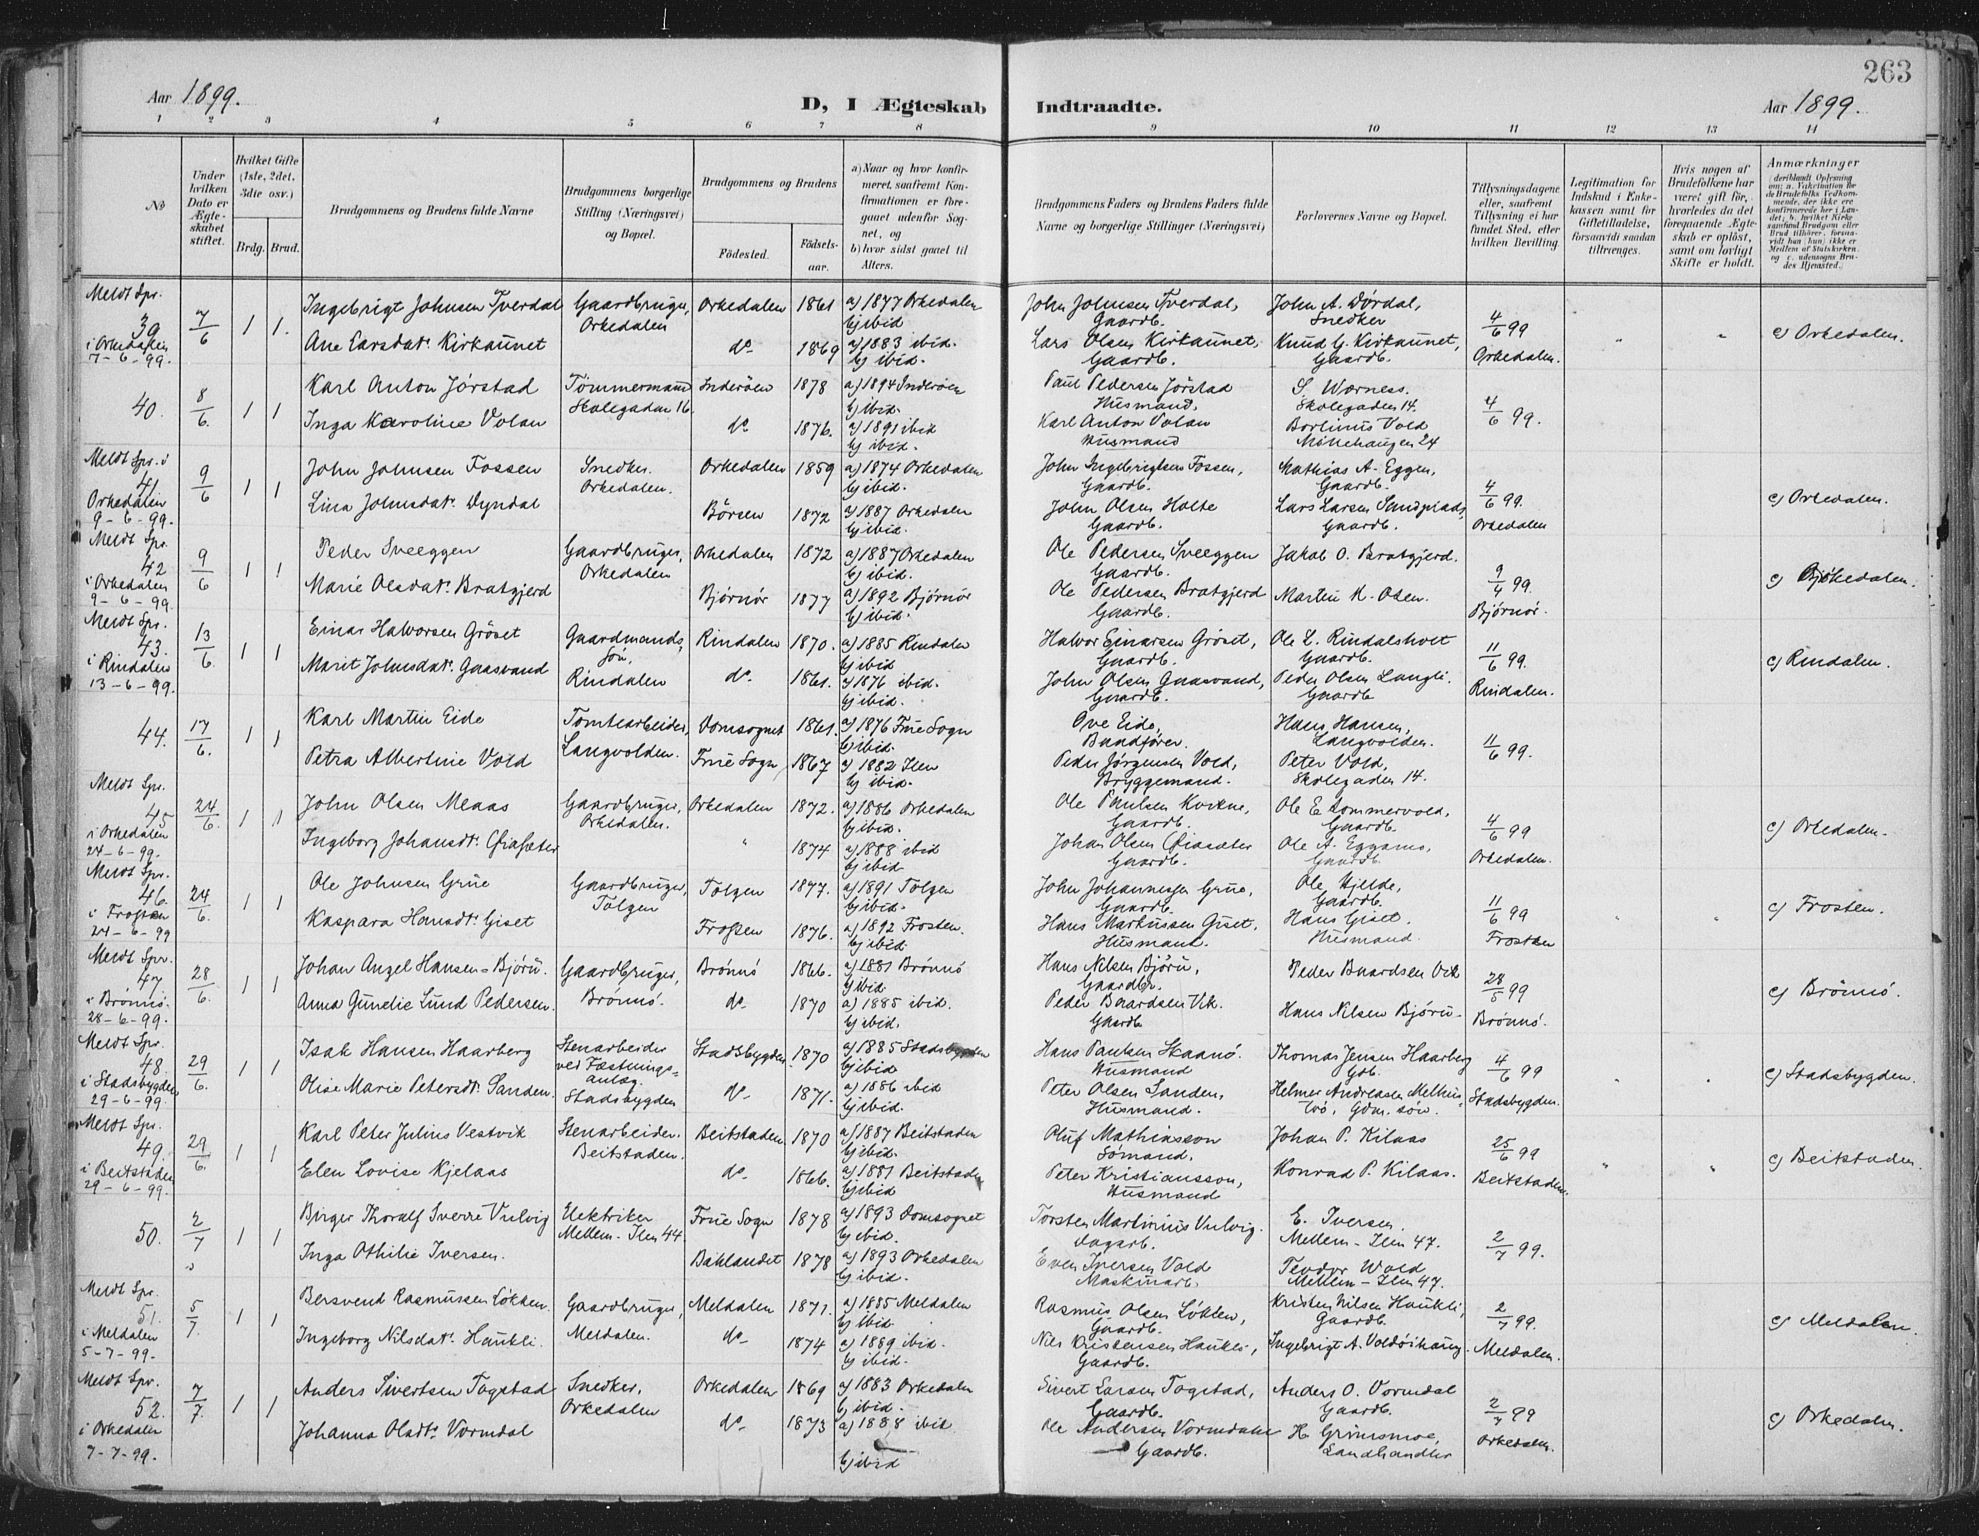 263
Aar 1899.
D, I Ægteskab Indtraadte.
Aar 1899.
1 2 3 4 5 6 7 8 9 10 11 12 13 14
No
Under hvilken Dato er Ægteskabet stiftet.
Hvilket Gifte (1ste, 2det, 3die osv.)
Brdg. Brud.
Brudgommens og Brudens fulde Navne
Brudgommens borgerlige Stilling (Næringsvei) og Bopæl.
Brudgommens og Brudens
Födested.
Födselsaar.
a) Naar og hvor konfirmeret, saafremt Konfirmationen er foregaaet udenfor Sognet, og
b) hvor sidst gaaet til Alters.
Brudgommens Faders og Brudens Faders fulde Navne og borgerlige Stillinger (Næringsvei)
Forlovernes Navne og Bopæl.
Tillysningsdagene eller, saafremt Tillysning ei har fundet Sted, efter hvilken Bevilling
Legitimation for Indskud i Enkekassen samt for Giftetilladelse, forsaavidt saadan tiltrænges.
Hvis nogen af Brudefolkene har været gift för, hvorledes da det foregaaende Ægteskab er oplöst, samt om lovligt Skifte er holdt.
Anmærkninger
Meldt Spr. 39 i Orkedalen 7-6-99. 7/6 1 1.
Ingebrigt Johnsen Tverdal Gaardbruger, Orkedalen Orkedalen 1861 a) 1877 Orkedalen b) ibid
Ane Larsdatr. Kirkaunet do 1869 a) 1883 ibid. b) ibid.
John Johnsen Tverdal, Gaardb. John A. Dördal, Snedker
Lars Olsen Kirkaunet, Gaardb. Knud G. Kirkaunet, Gaardb. 4/6 99 Orkedalen. c) Orkedalen.
40. 8/6. 1 1
Karl Anton Jørstad Tömmermand Skolegaden 16 Inderöen 1878 a) 1894 Inderöen b) ibid.
Inga Karoline Volan do 1876. a) 1891 ibid b) ibid.
Paul Pedersen Jørstad Husmand, S. Wærness. Skolegaden 14.
Karl Anton Volan Husmand Borlinus Vold Möllehaugen 24 4/6 99.
Meldt Spr. i 41. Orkedalen 9-6-99. 9/6 1 1
John Johnsen Fossen Snedker. Orkedalen. Orkedalen 1859 a) 1874 Orkedalen b) ibid.
Lina Johnsdatr. Dyndal Börsen 1872 a) 1887 Orkedalen b) ibid.
John Ingebrigtsen Fossen, Gaardb. Mathias A. Eggen, Gaardb.
John Olsen Holte Gaardb. Lars Larsen Gaardb. 4/6 99. Orkedalen c) Orkedalen.
Meldt Spr. 42 i Orkedalen 9-6-99. 9/6 1 1
Peder Sveeggen Gaardbruger, Orkedalen Orkedalen 1872 a) 1887 Orkedalen b) ibid.
Marie Olsdatr. Bratgjerd Bjørnör 1877 a) 1892 Bjørnör b) ibid.
Ole Pedersen Sveeggen Gaardb. Jakob O. Bratgjerd.
Ole Pedersen Bratgjerd Gaardb. Martin K. Osen. 9/4 99 Björnö. c)
Meldt Spr. 43. i Rindalen 13-6-99. 13/6 1 1
Einar Halvorsen Gröset Gaardmands Sön, Rindalen Rindalen 1870. a) 1885 Rindalen b) ibid
Marit Johnsdatr. Gaasvand do. 1861. a) 1876 ibid. b) ibid.
Halvor Einarsen Gröset, Gaardb. Ole L. Rindalsholt Gaardb.
John Olsen Gaasvand, Gaardb. Peder Olsen Langli. Gaardb 11/6 99. Rindalen. c) Rindalen.
44. 17/6. 1 1
Karl Martin Eide Tomtearbeider, Langvolden. Domsognet 1861. a) 1876 Frue Sogn b) ibid.
Petra Albertine Vold Frue Sogn 1867 a) 1882 Ilen b) ibid.
Ove Eide, Baadförer. Hans Hansen, Langvolden.
Peder Jørgensen Vold, Bryggemand. Peter Vold, Skolegaden 14. 11/6 99.
Meldt Spr. 45 i Orkedalen 24-6-99. 24/6. 1 1
John Olsen Meaas Gaardbruger, Orkedalen. Orkedalen 1872. a) 1886 Orkedalen b) ibid.
Ingeborg Johansdtr. Øiasæter " 1874 a) 1888 ibid b) ibid.
Ole Paulsen Kvikne, Gaardb. Ole E Sommervold, Gaardb.
Johan Olsen Øiasæter Gaardb. Ole A. Eggamo, Gaardb. 4/6 99 Orkedalen. c) Orkedalen.
Meldt Spr. 46. i Frosten 24-6-99 24/6. 1 1
Ole Johnsen Grue Gaardbruger, Tolgen Tolgen 1877. a) 1891 Tolgen b) ibid.
Kaspara Hansdtr. Giset Frosten 1876. a) 1892 Frosten. b) ibid
John Johannessen Grue, Gaardb. Ole Hjelde, Gaardb.
Hans Markussen Giset, Husmand. Hans Giset. Husmand. 11/6 99 Frosten c) Frosten.
Meldt Spr. 47. i Brönnö. 28-6-99. 28/6. 1 1
Johan Angel Hansen-Björu. Gaardbruger, Brönnö. Brönnö 1866. a) 1881 Brönnö b) ibid.
Anna Gunelie Lund Pedersen. do. 1870 a) 1885 ibid. b) ibid.
Hans Nilsen Björu, Gaardbr. Peder Baardsen Vik
Peder Baardsen Vik. Gaardb Hans Nilsen Björu. 28/5 99 Brönnö. c) Brönnö.
Meldt Spr. 48. i Stadsbygden 29-6-99. 29/6. 1 1
Isak Hansen Haarberg Stenarbeider ved Fæstningsanlæg. Stadsbygden Stadsbygden 1870 a) 1885 Stadsbygden b) ibid
Olise Marie Petersdtr. Sanden. do 1871. a) 1886 ibid b) ibid.
Hans Paulsen Skaanö. Husmand Thomas Jensen Haarberg Gdb.
Peter Olsen Sanden, Husmand. Helmer Andreassen Melhuströ, Gdm. sön. 4/6 99 Stadsbygden. c) Stadsbygden.
Meldt Spr. 49. i Beitstaden 29-6-99. 29/6. 1 1
Karl Peter Julius Vestvik Stenarbeider. Beitstaden. Beitstaden 1870 a) 1887 Beitstaden b) ibid.
Elen Lovise Kjelaas do. 1866. a) 1881 Beitstaden b) ibid
Oluf Mathiasson Sömand, Johan P. Kilaas
Peter Kristiansson, Husmand Konrad P. Kilaas. 25/6 99 Beitstaden. c) Beitstaden.
50. 2/7 1 1
Birger Thoralf Sverre Vulvig Elektriker Mellem-Ilen 44. Frue Sogn 1878 a) 1893 Domsognet b) ibid.
Inga Othilie Iversen. Baklandet 1878 a) 1893 Orkedalen b) ibid.
Torsten Martinius Vulvig. dagarb. E. Iversen. Mellem-Ilen 47.
Even Iversen Vold Maskinarb. Teodor Wold Mellem-Ilen 47. 2/7 99.
Meldt Spr. 51. i Meldalen 5-7-99. 5/7. 1 1
Bersvend Rasmussen Løkken. Gaardbruger, Meldalen. Meldalen 1871. a) 1885 Meldalen b) ibid
Ingeborg Nilsdatr. Haukli. do 1874 a) 1889 ibid. b) ibid.
Rasmus Olsen Løkken, Gaardb. Kristen Nilsen Haukli, Gaardb.
Nils Kristensen Haukli, Gaardb. Ingebrigt A. Voldöihaug. 2/7 99. Meldalen. c) Meldalen.
Meldt Spr. 52. i Orkedalen 7-7-99. 7/7. 1 1
Anders Sivertsen Togstad Snedker, Orkedalen Orkedalen 1869 a) 1883 Orkedalen b) ibid.
Johanna Olsdtr. Vormdal do. 1873 a) 1888 ibid. b) ibid
Sivert Larsen Togstad, Gaardb. Anders O. Vormdal Gaardb.
Ole Andersen Vormdalen Gaardb. H. Grimsmoe, Landhandler 2/7 99 Orkedalen. c) Orkedalen.